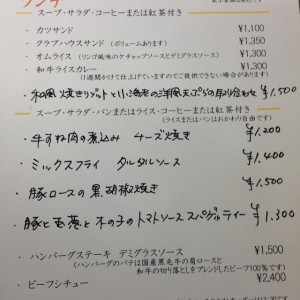 ランチ
スープ・サラダ・コーヒーまたは紅茶付き
・ カツサンド ¥1,100
・ クラブハウスサンド (ボリュームあります) ¥1,350
・ オムライス (リンゴ風味のケチャップソースとデミグラスソース) ¥1,300
・ 和牛ライスカレー ¥1,100
(1週間かけて仕上げていますのでご提供できない場合があります)
・和風焼きリゾットと小海老の洋風天ぷらの取り合わせ ¥1,500
スープ・サラダ・パンまたはライス・コーヒーまたは紅茶付き
(ライスまたはパンはおかわり自由です)
・牛すね肉の煮込み チーズ焼き ¥1,200
・ミックスフライ タルタルソース ¥1,400
・豚ロースの黒胡椒焼き ¥1,500
・豚と玉葱と木の子のトマトソーススパゲッティー ¥1,300
・ ハンバーグステーキ デミグラスソース ¥1,500
(ハンバーグのパテは国産黒毛牛の肩ロースと
和牛の切り落としをブレンドしたビーフ100%です)
・ ビーフシチュー ¥2,400